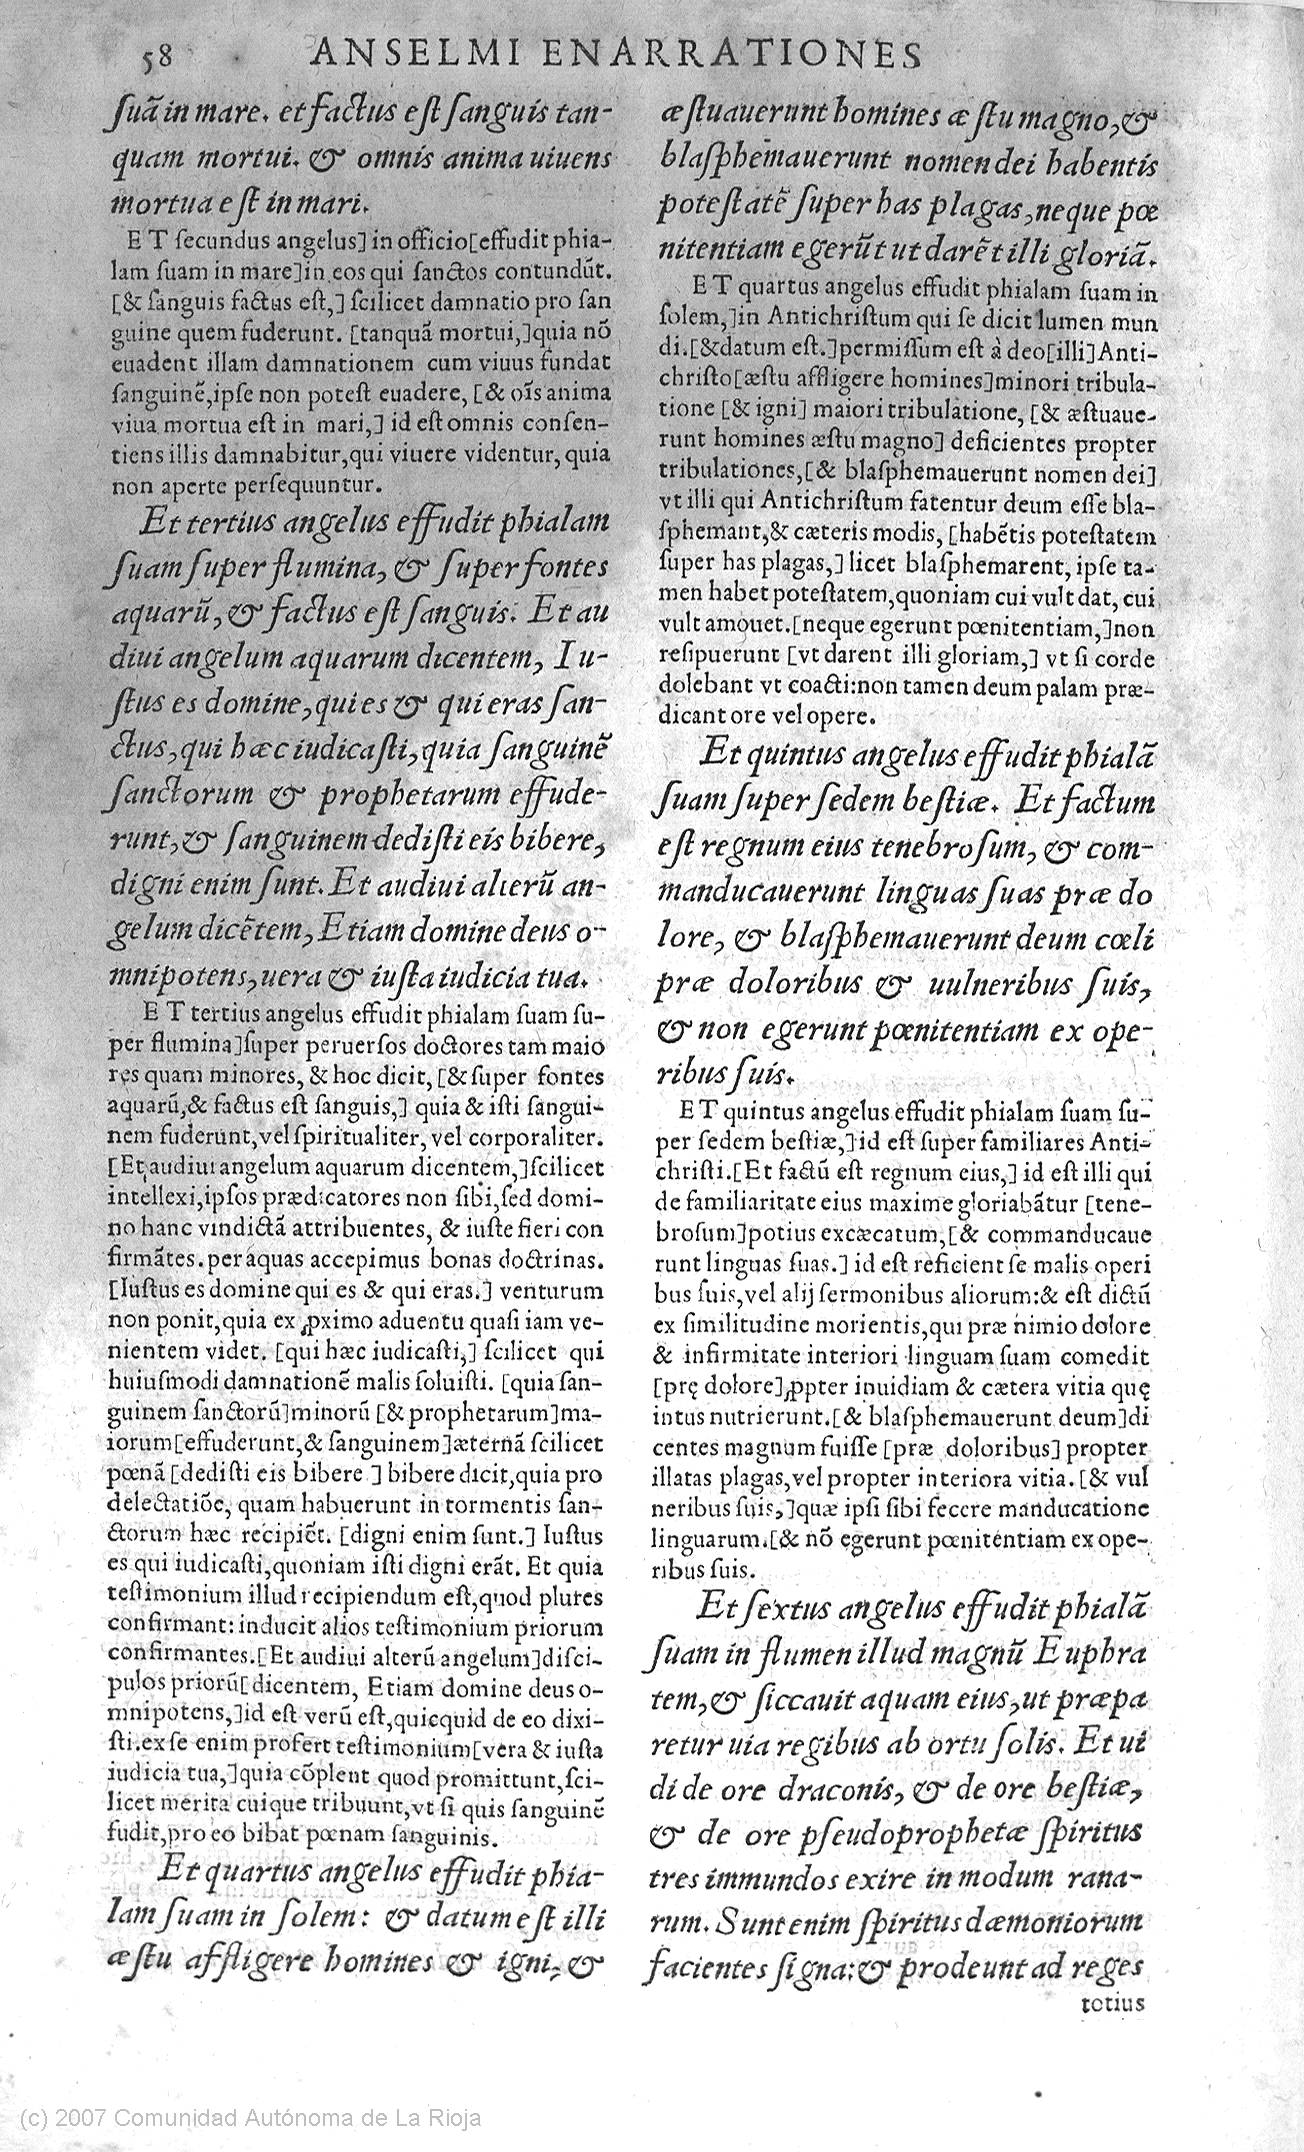 58 ANSELMI ENARRATIONES
suã in mare. et factus est sanguis tan-
quam mortui. & omnis anima uiuens
mortua est in mari.
ET secundus angelus] in officio [effudit phia-
lam suam in mare] in eos qui sanctos contundũt.
[& sanguis factus est,] scilicet damnatio pro san
guine quem fuderunt. [tanquã mortui,] quia nõ
euadent illam damnationem cum viuus fundat
sanguinẽ, ipse non potest euadere, [& oĩs anima
viua mortua est in mari,] id est omnis consen-
tiens illis damnabitur, qui viuere videntur, quia
non aperte persequuntur.
Et tertius angelus effudit phialam
suam super flumina, & super fontes
aquarũ, & factus est sanguis. Et au
diui angelum aquarum dicentem, Iu-
stus es domine, qui es & qui eras san-
ctus, qui hæc iudicasti, quia sanguinẽ
sanctorum & prophetarum effude-
runt, & sanguinem dedisti eis bibere,
digni enim sunt. Et audiui alterũ an-
gelum dicẽtem, Etiam domine deus o-
mnipotens, uera & iusta iudicia tua.
ET tertius angelus effudit phialam suam su-
per flumina] super peruersos doctores tam maio
res quam minores, & hoc dicit, [& super fontes
aquarũ, & factus est sanguis,] quia & isti sangui-
nem fuderunt, vel spiritualiter, vel corporaliter.
[Et audiui angelum aquarum dicentem,] scilicet
intellexi, ipsos prædicatores non sibi, sed domi-
no hanc vindictã attribuentes, & iuste fieri con
firmãtes. per aquas accepimus bonas doctrinas.
[Iustus es domine qui es & qui eras.] venturum
non ponit, quia ex ꝓximo aduentu quasi iam ve-
nientem videt. [qui hæc iudicasti,] scilicet qui
huiusmodi damnationẽ malis soluisti. [quia san-
guinem sanctorũ] minorũ [& prophetarum] ma-
iorum [effuderunt, & sanguinem] æternã scilicet
pœnã [dedisti eis bibere] bibere dicit, quia pro
delectatiõe, quam habuerunt in tormentis san-
ctorum hæc recipiẽt. [digni enim sunt.] Iustus
es qui iudicasti, quoniam isti digni erãt. Et quia
testimonium illud recipiendum est, quod plures
confirmant: inducit alios testimonium priorum
confirmantes. [Et audiui alterũ angelum] disci-
pulos priorũ [dicentem, Etiam domine deus o-
mnipotens,] id est verũ est, quicquid de eo dixi-
sti. ex se enim profert testimonium [vera & iusta
iudicia tua,] quia cõplent quod promittunt, sci-
licet merita cuique tribuunt, vt si quis sanguinẽ
fudit, pro eo bibat pœnam sanguinis.
Et quartus angelus effudit phia-
lam suam in solem: & datum est illi
æstu affligere homines & igni, &
æstuauerunt homines æstu magno, &
blasphemauerunt nomen dei habentis
potestatẽ super has plagas, neque pœ
nitentiam egerũt ut darẽt illi gloriã.
ET quartus angelus effudit phialam suam in
solem,] in Antichristum qui se dicit lumen mun
di. [& datum est.] permissum est à deo [illi] Anti-
christo [æstu affligere homines] minori tribula-
tione [& igni] maiori tribulatione, [& æstuaue-
runt homines æstu magno] deficientes propter
tribulationes, [& blasphemauerunt nomen dei]
vt illi qui Antichristum fatentur deum esse bla-
sphemant, & cæteris modis, [habẽtis potestatem
super has plagas,] licet blasphemarent, ipse ta-
men habet potestatem, quoniam cui vult dat, cui
vult amouet. [neque egerunt pœnitentiam,] non
resipuerunt [vt darent illi gloriam,] vt si corde
dolebant vt coacti: non tamen deum palam præ-
dicant ore vel opere.
Et quintus angelus effudit phialã
suam super sedem bestiæ. Et factum
est regnum eius tenebrosum, & com-
manducauerunt linguas suas præ do
lore, & blasphemauerunt deum cœli
præ doloribus & uulneribus suis,
& non egerunt pœnitentiam ex ope-
ribus suis.
ET quintus angelus effudit phialam suam su-
per sedem bestiæ,] id est super familiares Anti-
christi. [Et factũ est regnum eius,] id est illi qui
de familiaritate eius maxime gloriabãtur [tene-
brosum] potius excæcatum, [& commanducaue
runt linguas suas.] id est reficient se malis operi
bus suis, vel alij sermonibus aliorum: & est dictũ
ex similitudine morientis, qui præ nimio dolore
& infirmitate interiori linguam suam comedit
[prę dolore] ꝓpter inuidiam & cætera vitia quę
intus nutrierunt. [& blasphemauerunt deum] di
centes magnum fuisse [præ doloribus] propter
illatas plagas, vel propter interiora vitia. [& vul
neribus suis,] quæ ipsi sibi fecere manducatione
linguarum. [& nõ egerunt pœnitentiam ex ope-
ribus suis.
Et sextus angelus effudit phialã
suam in flumen illud magnũ Euphra
tem, & siccauit aquam eius, ut præpa
retur uia regibus ab ortu solis. Et ui
di de ore draconis, & de ore bestiæ,
& de ore pseudoprophetæ spiritus
tres immundos exire in modum rana-
rum. Sunt enim spiritus dæmoniorum
facientes signa: & prodeunt ad reges
totius
(c) 2007 Comunidad Autónoma de La Rioja